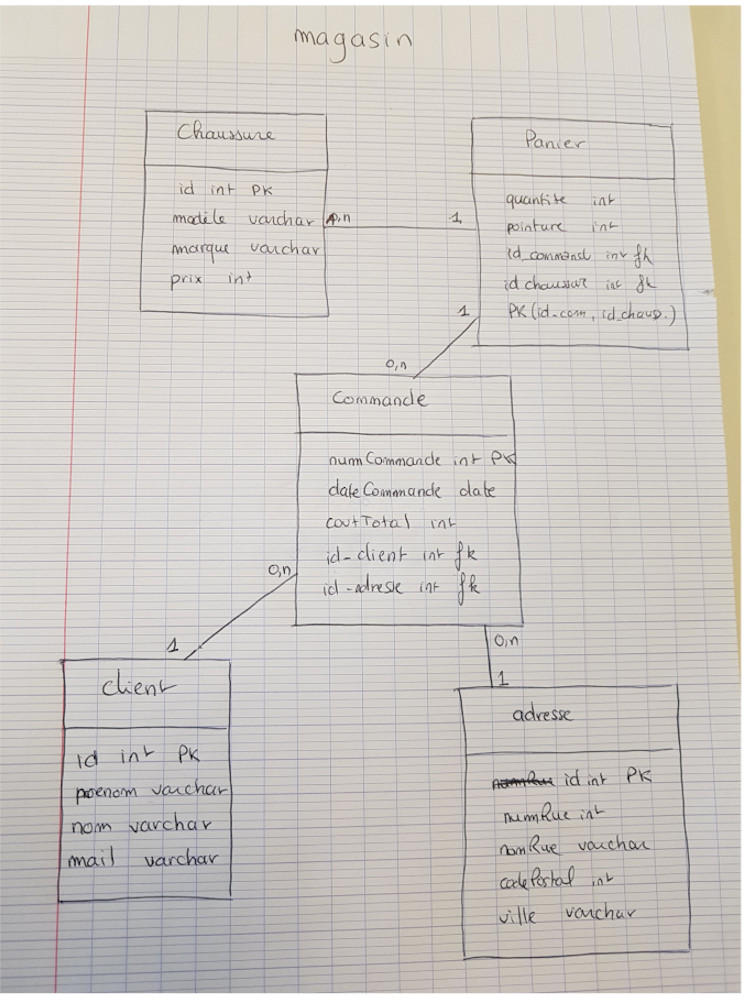 magasin
Chaussure
id int PK
modèle varchar
marque varchar
prix int
0,n
1
Panier
quantite int
pointure int
id_command int fk
id chaussur int fk
PK (id-com, id_chaus.)
1
0,n
Commande
numCommande int PK
dateCommande date
coutTotal int
id-client int fk
id-adresse int fk
0,n
1
0,n
1
client
id int PK
prenom varchar
nom varchar
mail varchar
adresse
id int PK
numRue int
nomRue varchar
codePostal int
ville varchar